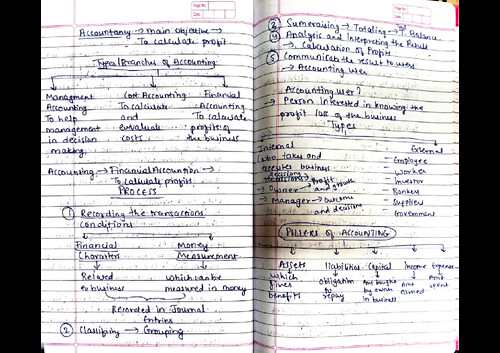 Page No.
Date
Accountancy → main objective →
To calculate profit
Types/Branches of Accounting
Management Cost Accounting Financial
Accounting To calculate Accounting
To help and To calculate
management evaluate profits of
in decision costs the business
making
Accounting → Financial Accounting →
To calculate profits
PROCESS
① Recording the transactions
Conditions
Financial Money
Character Measurement
Related Which can be
to business measured in money
Recorded in Journal
Entries
② Classify → Grouping
Page No.
Date
③ Summeraising → Totaling → T. Balance
④ Analysis and Interpreting the Result
→ Calculation of Profits
⑤ Communicate the result to users
→ Accounting user
Accounting user?
→ Person Interested in knowing the
profit loss of the business
Types
Internal External
who takes and - Employee
executes business - Worker
decisions - Investor
→ Owner → Profit and growth - Bankers
→ Manager → outcome - Supplier
and decisions Government
PILLERS OF ACCOUNTING
Assets liabilities Capital Income Expense
which obligation Amt bought Amt Amt
gives to by owner earned spent
benefits repay in business